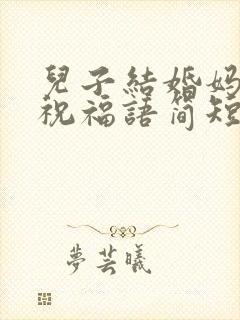 兒子結婚媽
祝福語簡短
夢芸曦